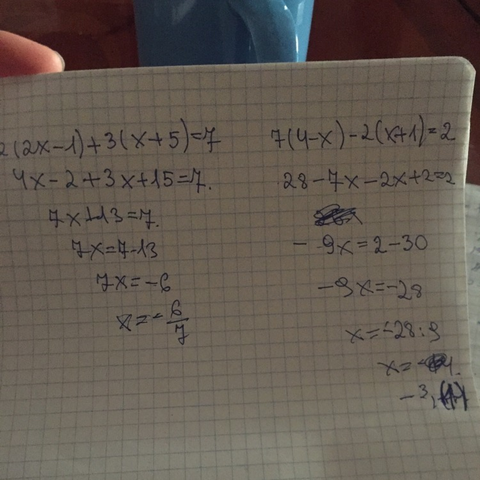 2(2x-1)+3(x+5)=7
4x-2+3x+15=7.
7x+13=7.
7x=7-13
7x=-6
x=-6/7
7(4-x)-2(x+1)=2
28-7x-2x+2=2
-9x=2-30
-9x=-28
x=-28:9
x=-
-3,